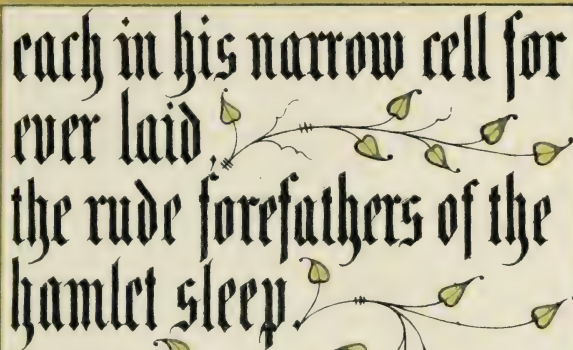 each in his narrow cell for
ever laid,
the rude forefathers of the
hamlet sleep.